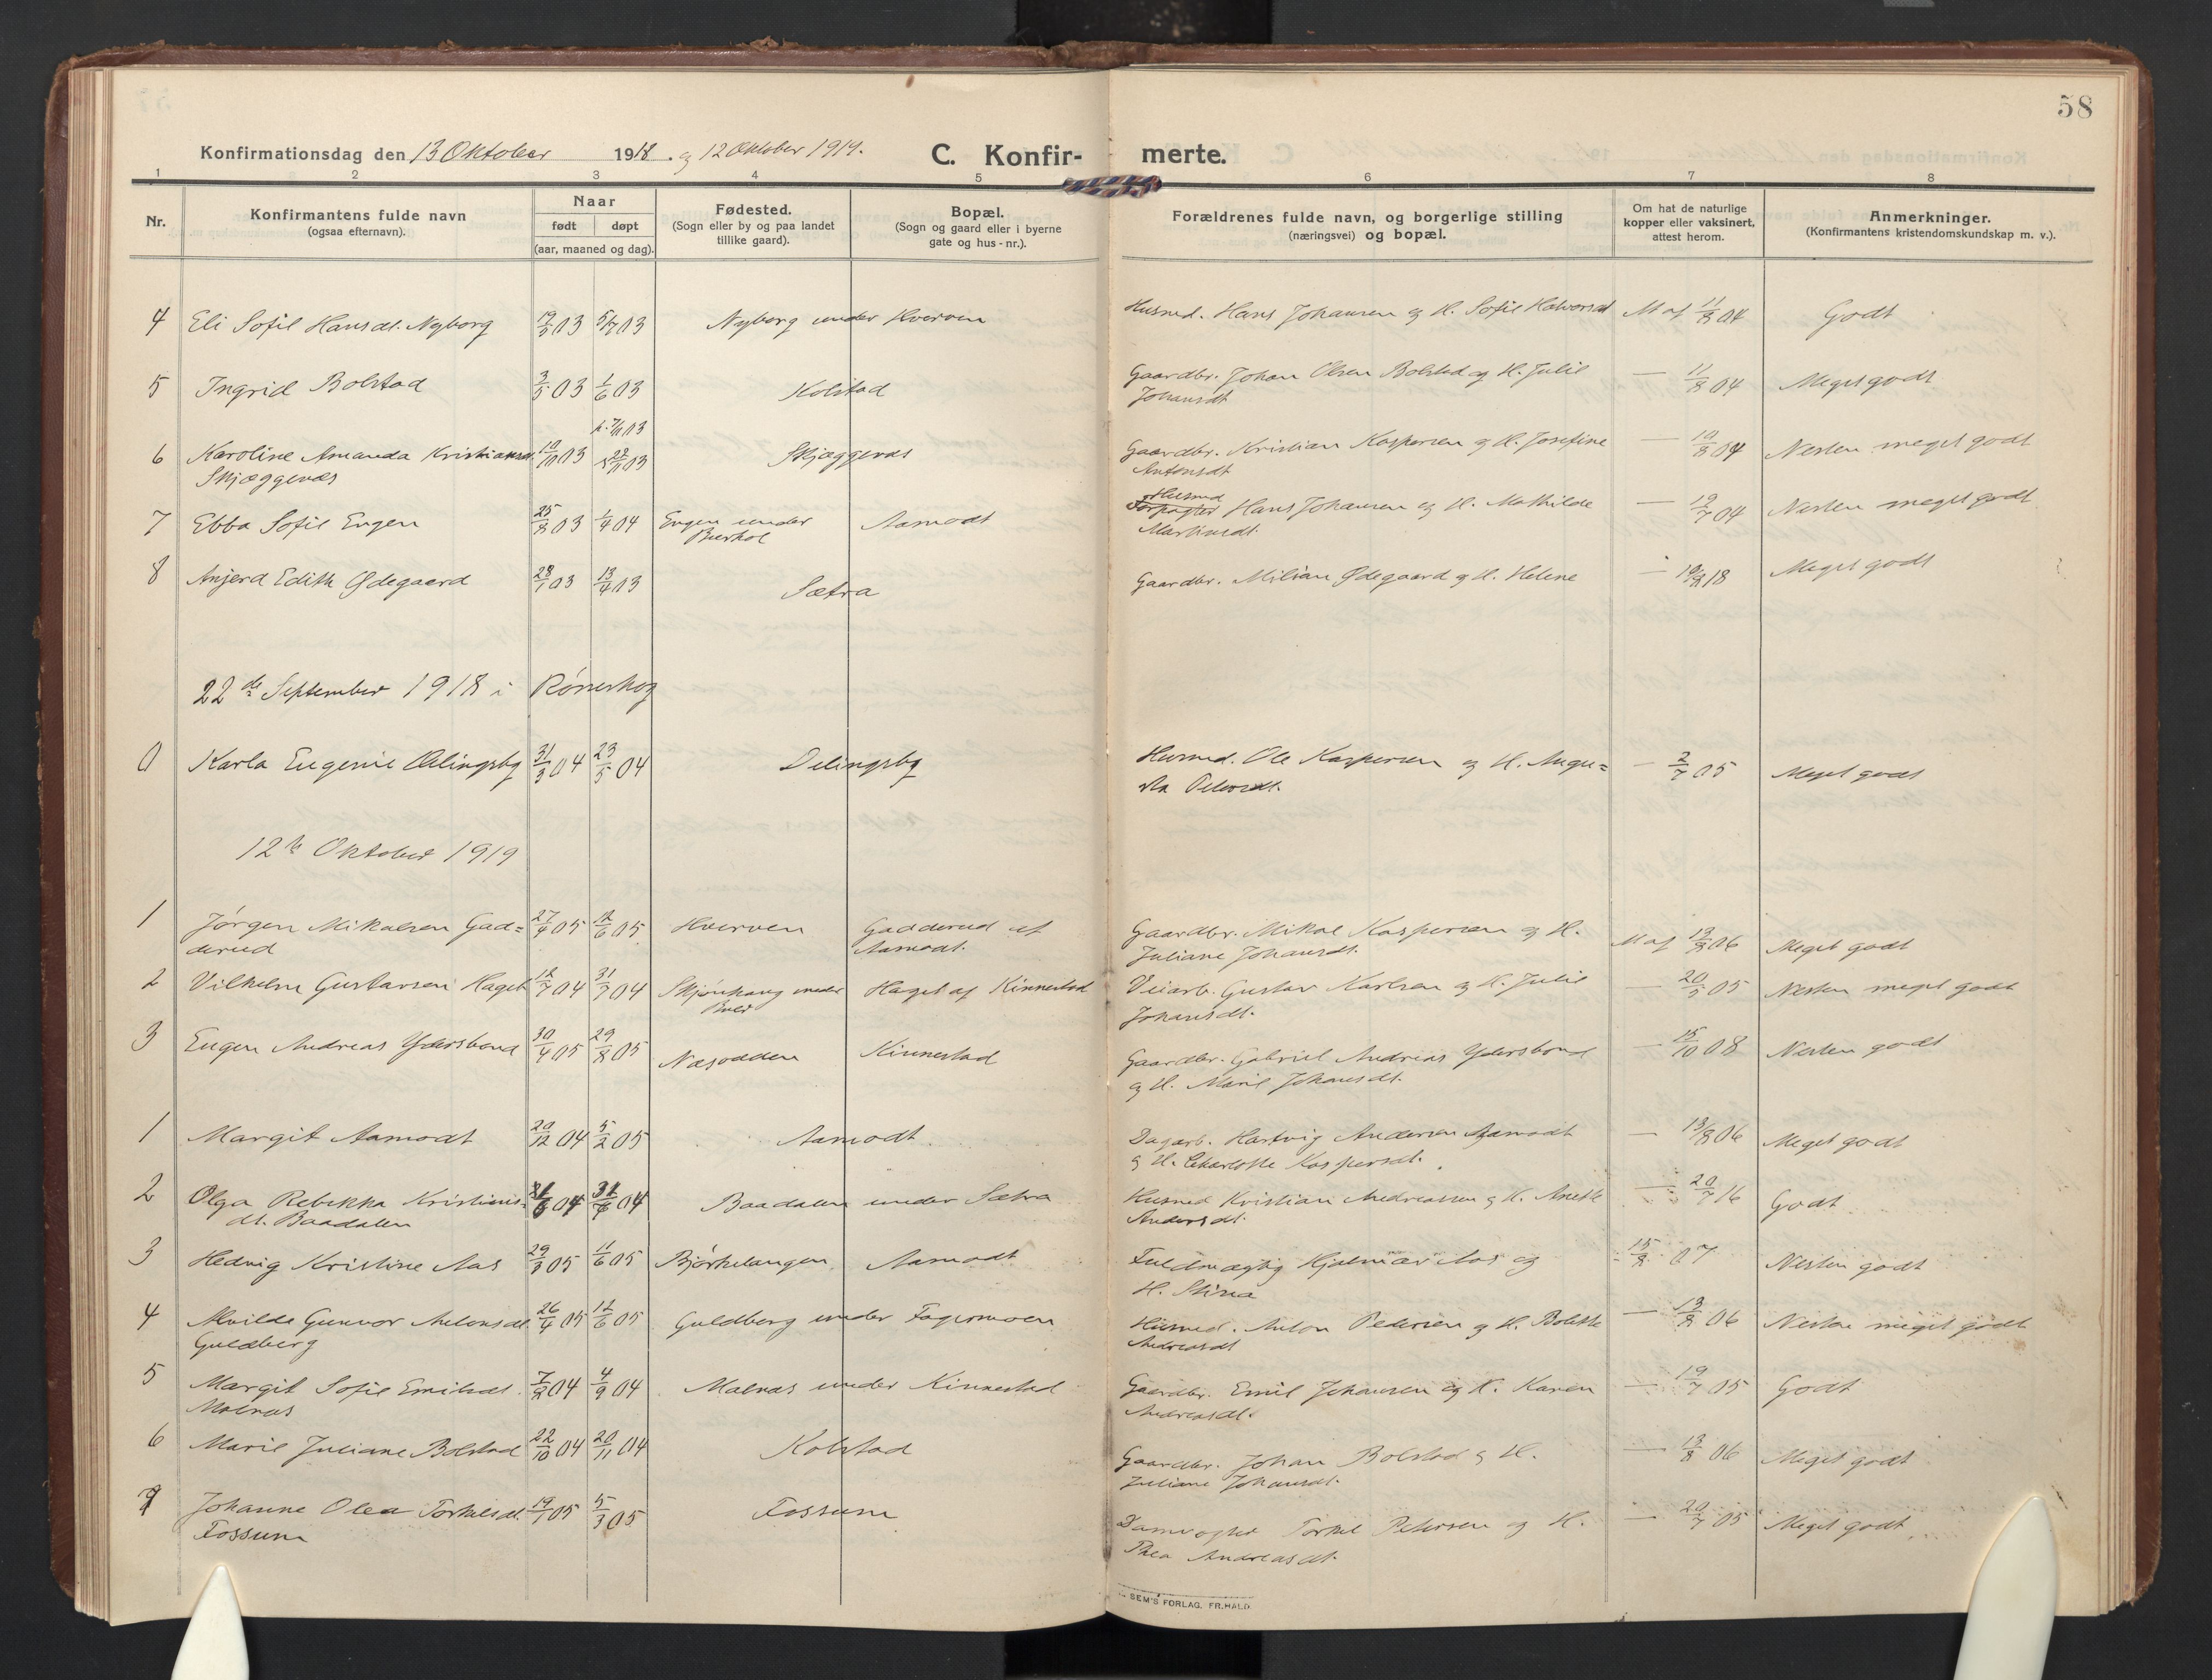 58
Konfirmationsdag den 13 Oktober 1918. og 12 Oktober 1919.
C. Konfir- merte.
1 2 3 4 5 6 7 8
Nr.
Konfirmantens fulde navn
(ogsaa efternavn).
Naar
født døpt
(aar, maaned og dag).
Fødested.
(Sogn eller by og paa landet
tillike gaard).
Bopæl.
(Sogn og gaard eller i byerne
gate og hus-nr.).
Forældrenes fulde navn, og borgerlige stilling
(næringsvei) og bopæl.
Om hat de naturlige
kopper eller vaksinert,
attest herom.
Anmerkninger.
(Konfirmantens kristendomskundskap m. v.).
4 Eli Sofie Hansdt. Nyborg 03 5/7 03 Nyborg under Hverven Husmd. Hans Johansen og H. Sofie Halvorsdt M af 11/8 04 Godt
5 Ingrid Bolstad 3/5 03 1/6 03 Kolstad Gaardbr. Johan Olsen Bolstad og H. Julie — 11/8 04 Meget godt
Johansdt
6 Karoline Amanda Kristiansdt. 10/10 03 22/11 03 Skjæggenæs Gaardbr. Kristian Kaspersen og H. Josefine — 10/8 04 Nesten meget godt
Skjæggenæs
Antonsdt
Husmd
7 Ebba Sofie Engen 25/8 03 1/4 04 Engen under Aamodt Forpagter Hans Johansen og H. Mathilde — 19/7 04 Nesten meget godt
Martinsdt.
8 Anjerd Edith Ødegaard 28/1 03 13/4 03 Sætra Gaardbr. Milian Ødegaard og H. Helene — 19/8 18 Meget godt
22de September 1918 i Rømskog
0 Karla Eugenie Delingsby 31/3 04 23/5 04 Delingsby Husmd. Ole Kaspersen og H. Augu= — 2/7 05 Meget godt
sta Petersdt.
12te Oktober 1919
1 Jørgen Mikalsen Gad= 27/4 05 12/6 05 Hverven Gadderud af Gaardbr. Mikal Kaspersen og H. M af 13/8 06 Meget godt
derud Aamodt. Juliane Johansdt.
2 Vilhelm Gustavsen Haget 12/7 04 31/7 04 Skjønhaug under Haget af Kinnestad Veiarb. Gustav Karlsen og H. Julie — 20/5 05 Nesten meget godt
Johansdt.
3 Eugen Andreas Ydersbond 30/4 05 29/8 05 Næsodden Kinnestad Gaardbr. Gabriel Andreas Ydersbond — 15/10 08 Nesten godt
og H. Marie Johansdt.
1 Margit Aamodt 20/12 04 5/2 05 Aamodt Dagarb. Hartvig Andersen Aamodt — 13/8 06 Meget godt
og H. Charlotte Kaspersdt.
2 Olga Rebekka Kristians= 04 04 Baadalen under Sætra Husmd Kristian Andreassen og H. Anette — 20/7 16 Godt
dt. Baadalen Andersdt.
3 Hedvig Kristine Aas 29/3 05 11/6 05 Bjørkelangen Aamodt Fuldmægtig Hjalmar Aas og 15/8 07 Nesten godt
H. Stina
4 Alvilde Gunvor Antonsdt. 26/4 05 12/6 05 Guldberg under Fagermoen Husmd. Anton Pedersen og H. Bolette — 13/8 06 Nesten meget godt
Guldberg Andreasdt
5 Margit Sofie Emilsdt. 7/8 04 4/9 04 Malnæs under Kinnestad Gaardbr. Emil Johansen og H. Karen — 19/7 05 Godt
Malnæs Andreasdt.
6 Marie Juliane Bolstad 22/10 04 20/11 04 Kolstad Gaardbr. Johan Bolstad og H. — 13/8 06 Meget godt
Juliane Johansdt.
7 Johanne Olea Torkelsdt. 19/1 05 5/3 05 Fossum Damvogter Torkel Petersen og H. — 20/7 05 Meget godt
Fossum Thea Andreasdt.
SEM'S FORLAG. FR.HALD.